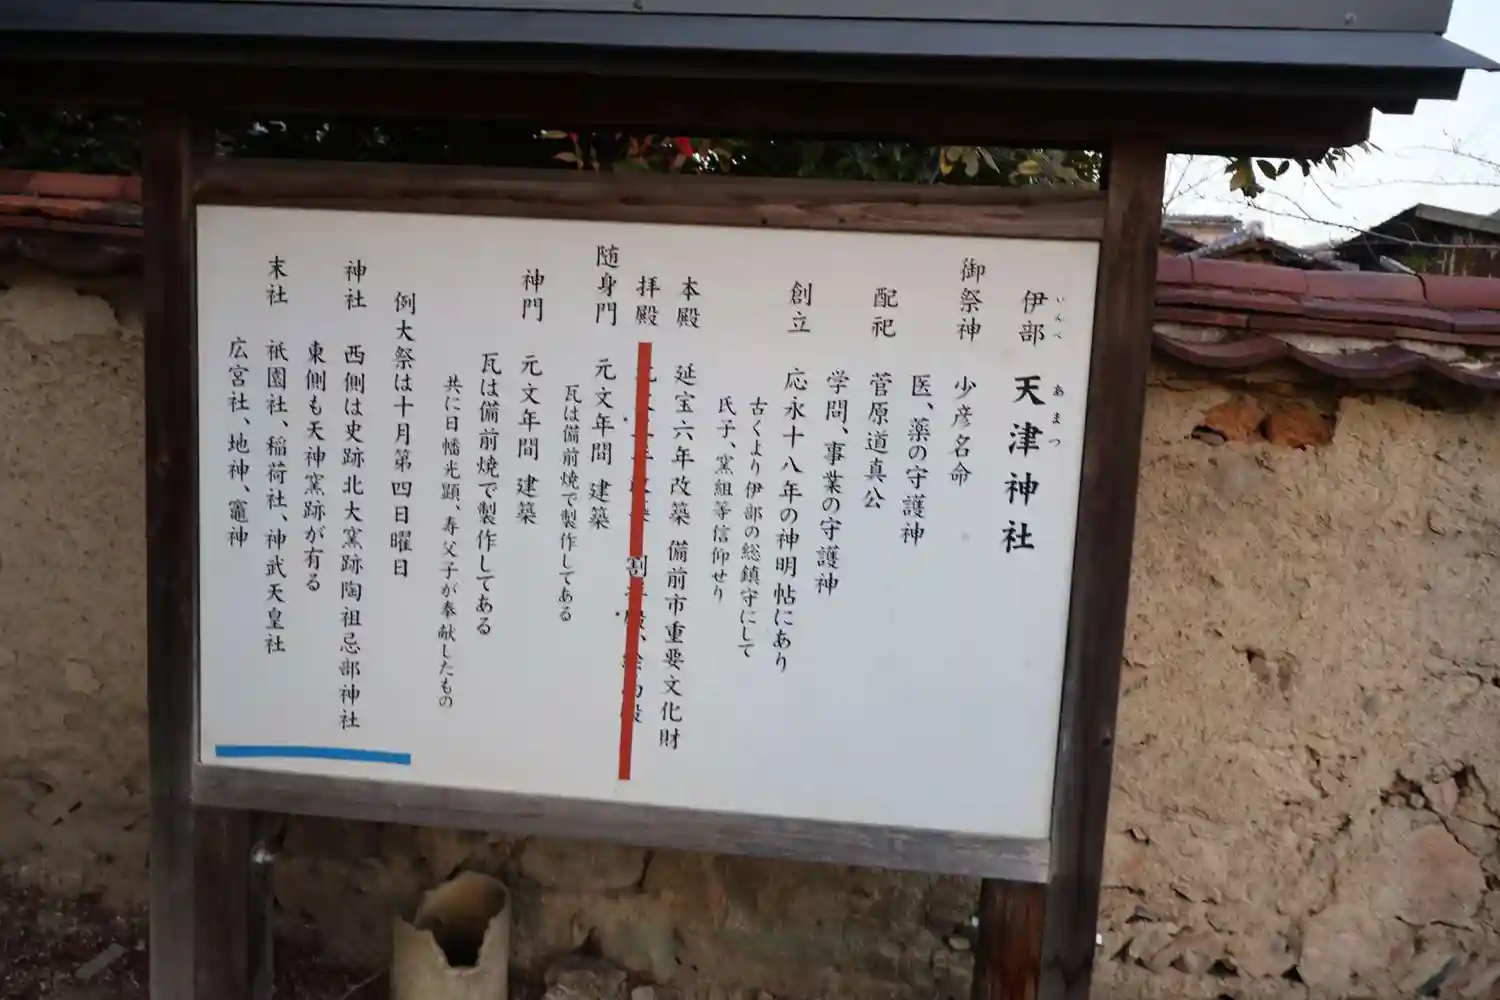 いんべ あまつ
伊部 天津神社
御祭神 少彦名命
医、薬の守護神
配祀 菅原道真公
学問、事業の守護神
創立 応永十八年の神明帖にあり
古くより伊部の総鎮守にして
氏子、窯組等信仰せり
本殿 延宝六年改築 備前市重要文化財
拝殿 割
随身門 元文年間 建築
瓦は備前焼で製作してある
神門 元文年間 建築
瓦は備前焼で製作してある
共に日幡光顕、寿父子が奉献したもの
例大祭は十月第四日曜日
神社 西側は史跡北大窯跡陶祖忌部神社
東側も天神窯跡が有る
末社 祇園社、稲荷社、神武天皇社
広宮社、地神、竈神